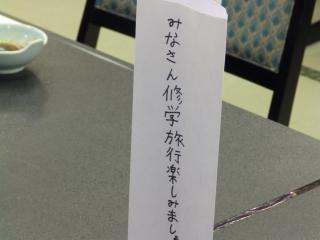 みなさん修学旅行楽しみましょう